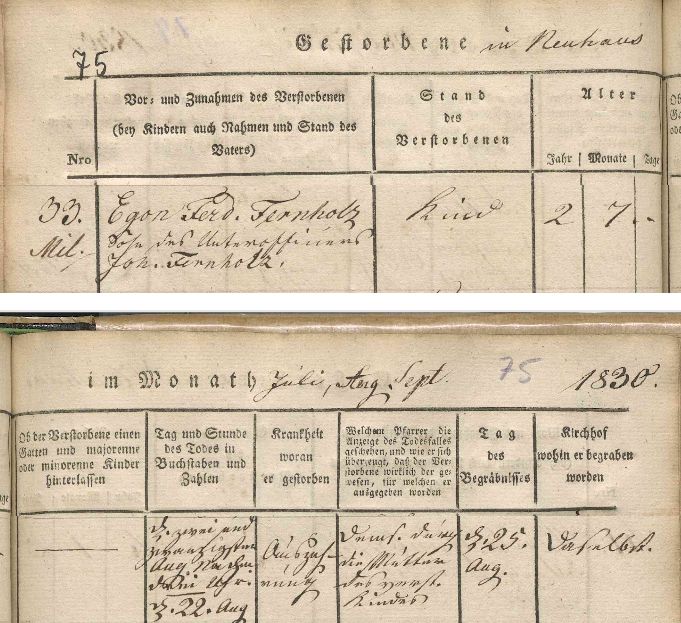 Gestorbene in Neuhaus
75
Nro
Vor- und Zunahmen des Verstorbenen
(bey Kindern auch Nahmen und Stand des
Vaters)
Stand
des
Verstorbenen
Alter
Jahr | Monate | Tage
33.
Mil.
Egon Ferd. Fernholz
Sohn des Unterofficiers
Joh. Fernholz.
Kind
2
7.
-
im Monath Juli, Aug Sept.
75
1830.
Ob der Verstorbene einen
Gatten und majorenne
oder minorenne Kinder
hinterlassen
Tag und Stunde
des Todes in
Buchstaben und
Zahlen
Krankheit
woran
er gestorben
Welchem Pfarrer die
Anzeige des Todesfalles
geschehen, und wie er sich
überzeugt, daß der Ver-
storbene wirklich der ge-
wesen, für welchen er
ausgegeben worden
Tag
des
Begräbnisses
Kirchhof
wohin er begraben
worden
d. zwei und
zwanzigsten
Aug Nachm
drei Uhr.
d. 22. Aug
Auszeh-
rung
Dems. durch
die Mutter
des verst.
Kindes
d. 25.
Aug.
Daselbst.